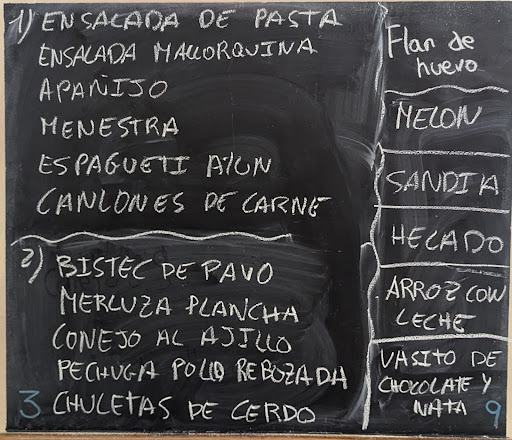 1) ENSALADA DE PASTA
ENSALADA MALLORQUINA
APAÑIJO
MENESTRA
ESPAGUETI ATUN
CANLONES DE CARNE
2) BISTEC DE PAVO
MERLUZA PLANCHA
CONEJO AL AJILLO
PECHUGA POLLO REBOZADA
3 CHULETAS DE CERDO
Flan de
huevo
MELON
SANDIA
HELADO
ARROZ CON
LECHE
VASITO DE
CHOCOLATE Y
NATA 9